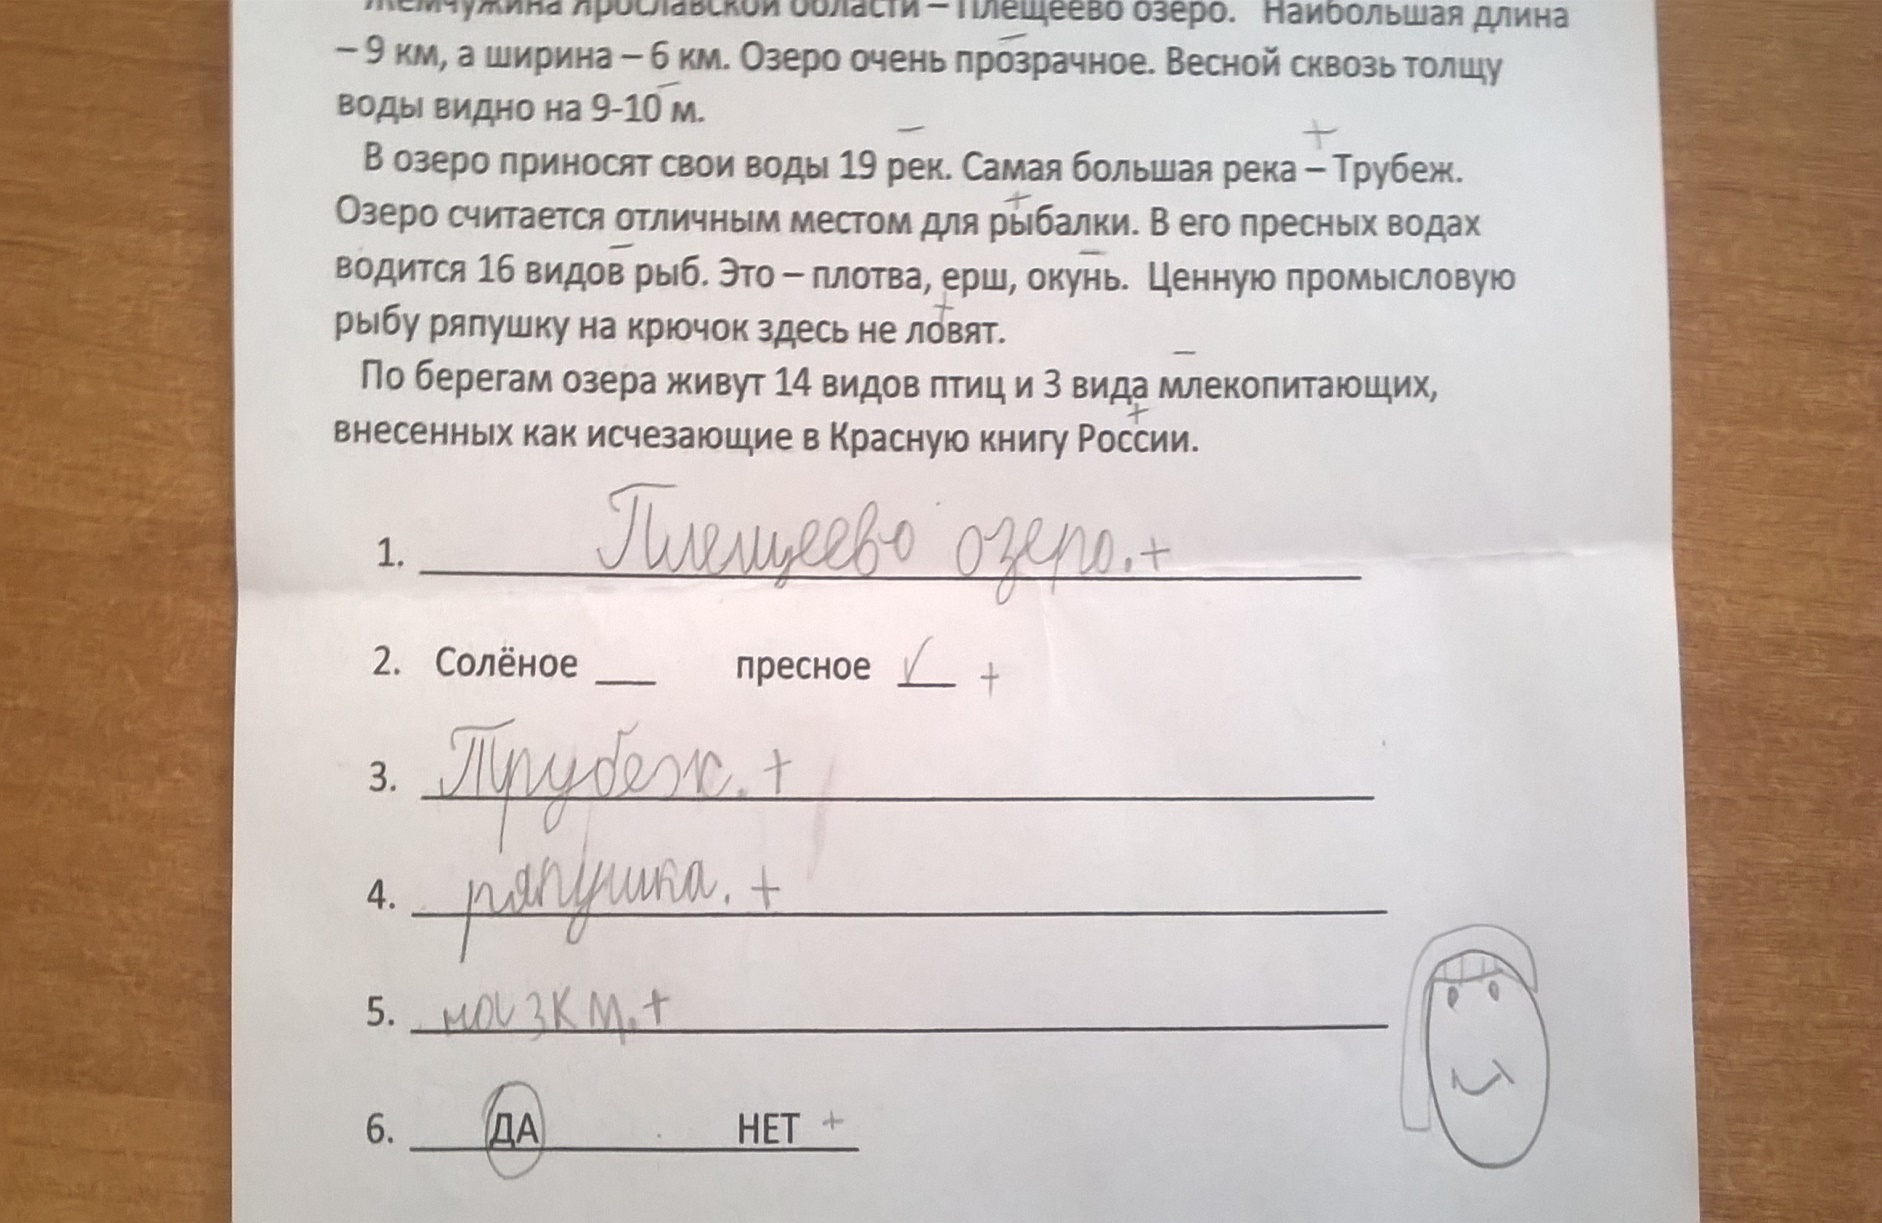 Жемчужина Ярославской области – Плещеево озеро. Наибольшая длина
– 9 км, а ширина – 6 км. Озеро очень прозрачное. Весной сквозь толщу
воды видно на 9-10 м.
В озеро приносят свои воды 19 рек. Самая большая река – Трубеж.
Озеро считается отличным местом для рыбалки. В его пресных водах
водится 16 видов рыб. Это – плотва, ерш, окунь. Ценную промысловую
рыбу ряпушку на крючок здесь не ловят.
По берегам озера живут 14 видов птиц и 3 вида млекопитающих,
внесенных как исчезающие в Красную книгу России.
1. Плещеево озеро. +
2. Солёное ___ пресное √ +
3. Трубеж. +
4. ряпушка. +
5. на 3 км. +
6. ДА НЕТ +